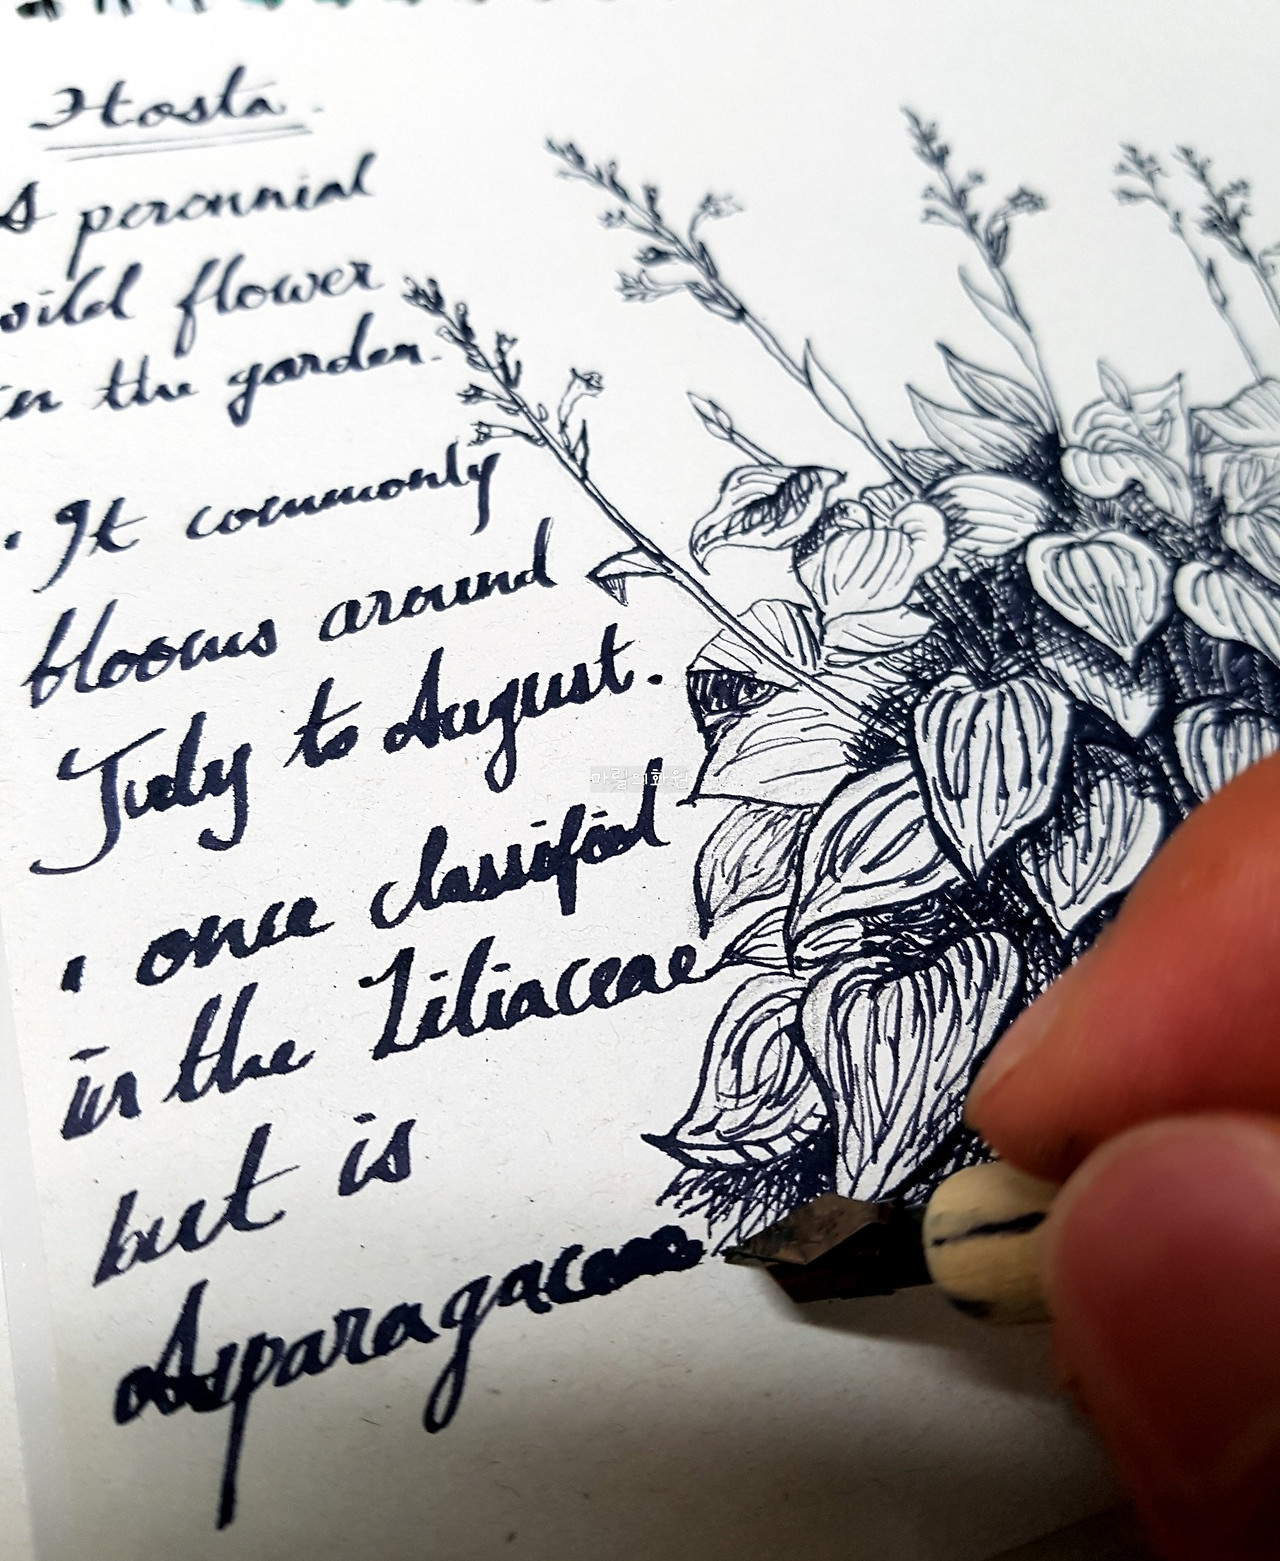 Hosta.
A perennial
wild flower
in the garden.
· It commonly
blooms around
July to August.
마릴의화원
· once classified
in the Liliaceae
but is
Asparagaceae